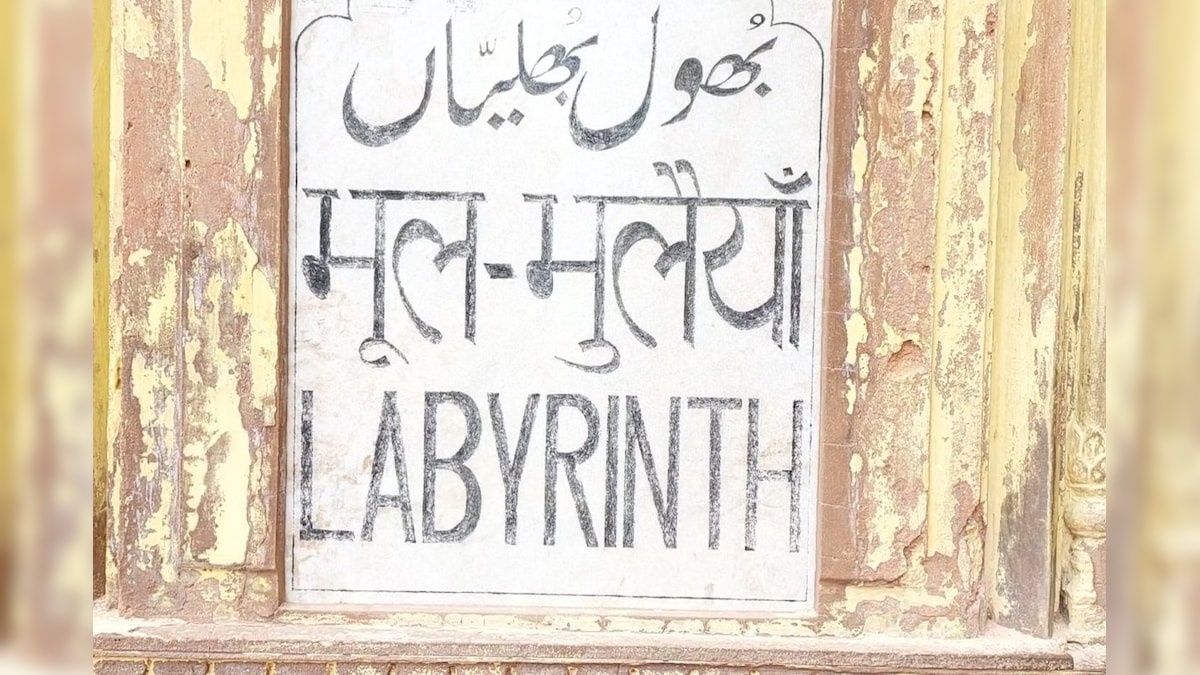 بُھول بُھلیّاں
भूल-भुलैयाँ
LABYRINTH